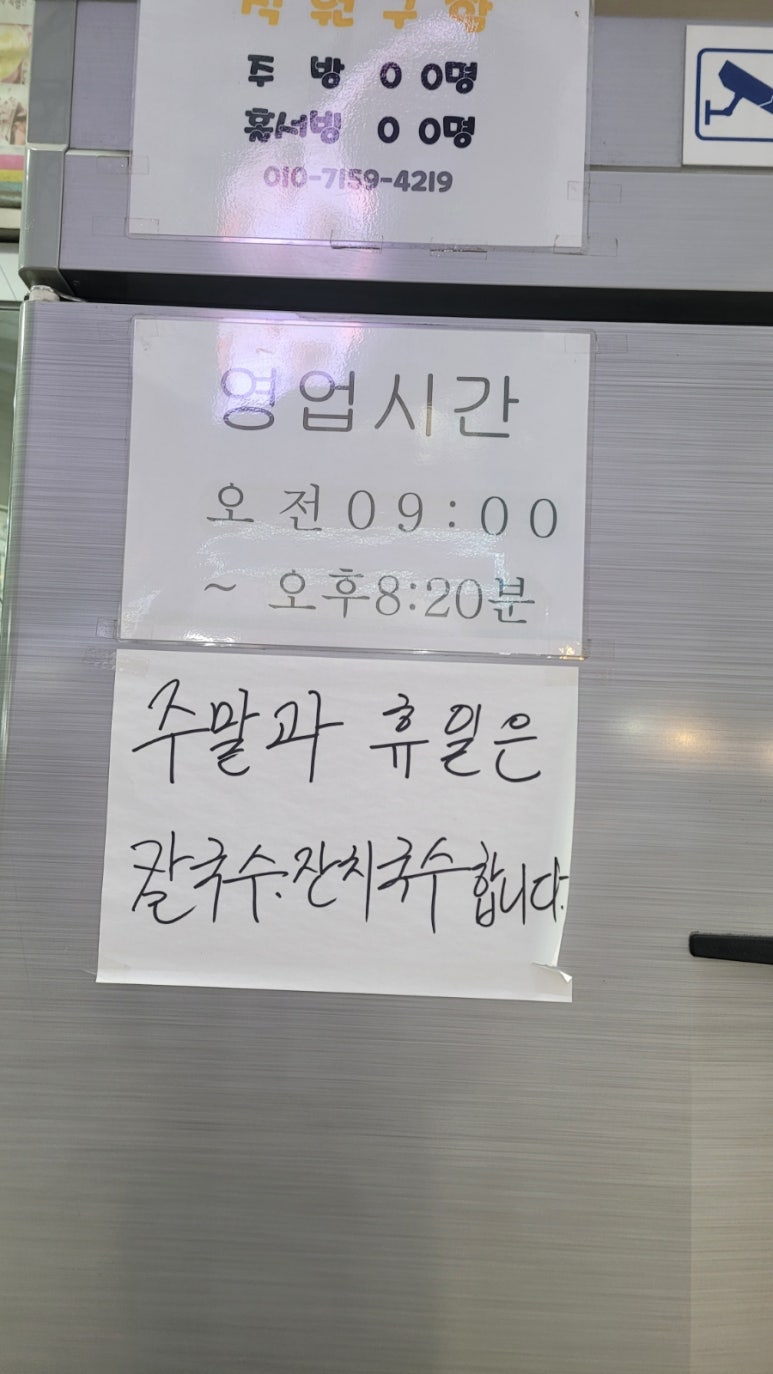 직원구함
주 방 0 0명
홀서빙 0 0명
010-7159-4219
영업시간
오 전 0 9 : 0 0
~ 오후8:20분
주말과 휴일은
칼국수.잔치국수 합니다.